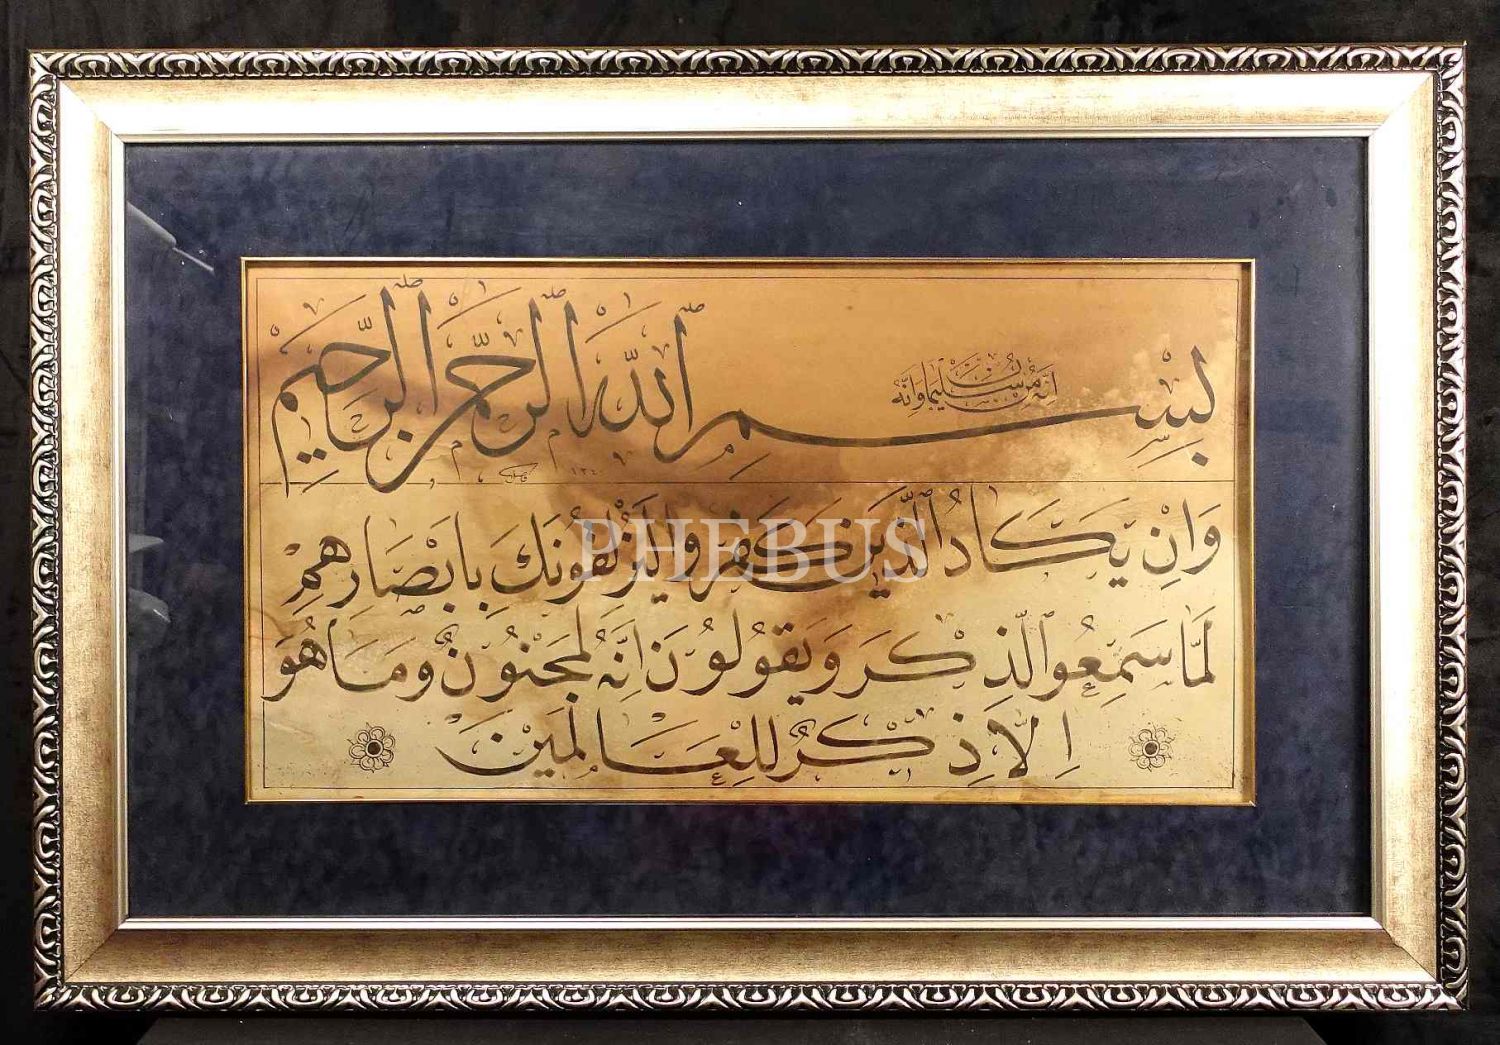 انه من سليمان وانه
بِسْمِ اللّٰهِ الرَّحْمٰنِ الرَّحِيمِ
١٣٤٠
وَاِنْ يَكَادُ الَّذِينَ كَفَرُوا لَيُزْلِقُونَكَ بِاَبْصَارِهِمْ
لَمَّا سَمِعُوا الذِّكْرَ وَيَقُولُونَ اِنَّهُ لَمَجْنُونٌ وَمَا هُوَ
اِلَّا ذِكْرٌ لِلْعَالَمِينَ
PHEBUS